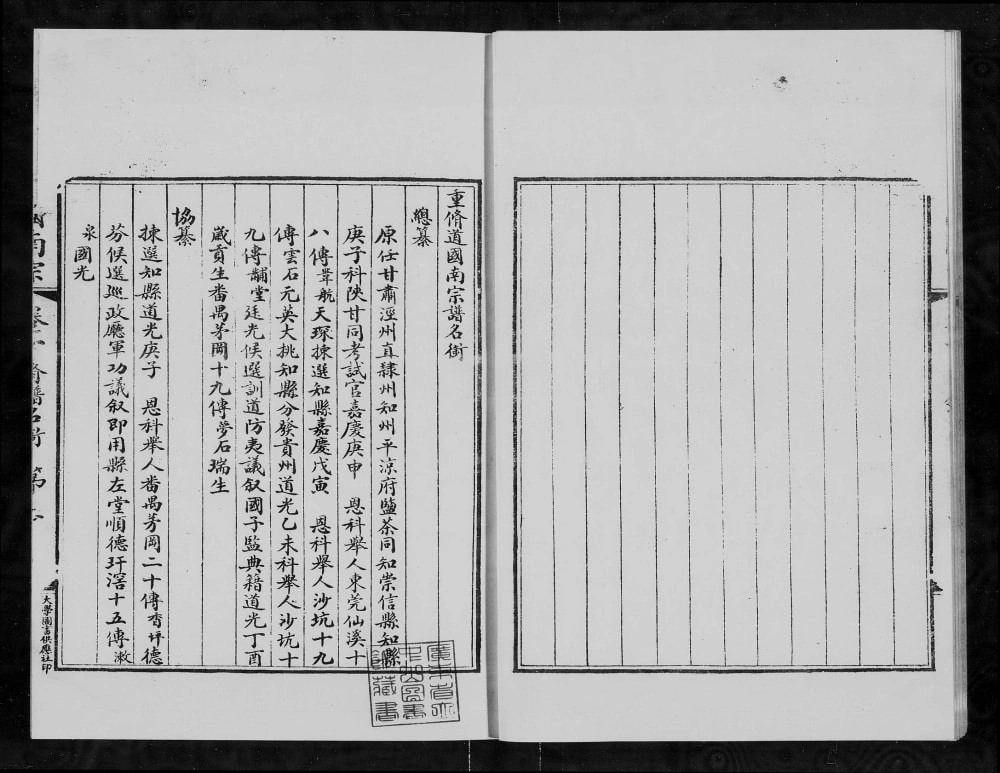 重脩道國南宗譜名銜
總纂
原任甘肅涇州直隸州知州平涼府鹽茶同知崇信縣知縣
庚子科陝甘同考試官嘉慶庚申　恩科舉人東莞仙溪十
八傳葦航天琛揀選知縣嘉慶戊寅　恩科舉人沙坑十九
傳雲石元英大挑知縣分發貴州道光乙未科舉人沙坑十
九傳黼堂廷光候選訓道防夷議叙國子監典籍道光丁酉
歲貢生番禺茅岡十九傳夢石瑞生
協纂
揀選知縣道光庚子　恩科舉人番禺芳岡二十傳杏坪德
芬候選巡政廳軍功議叙即用縣左堂順德玕滘十五傳漱
泉國光
大學圖書供應社印